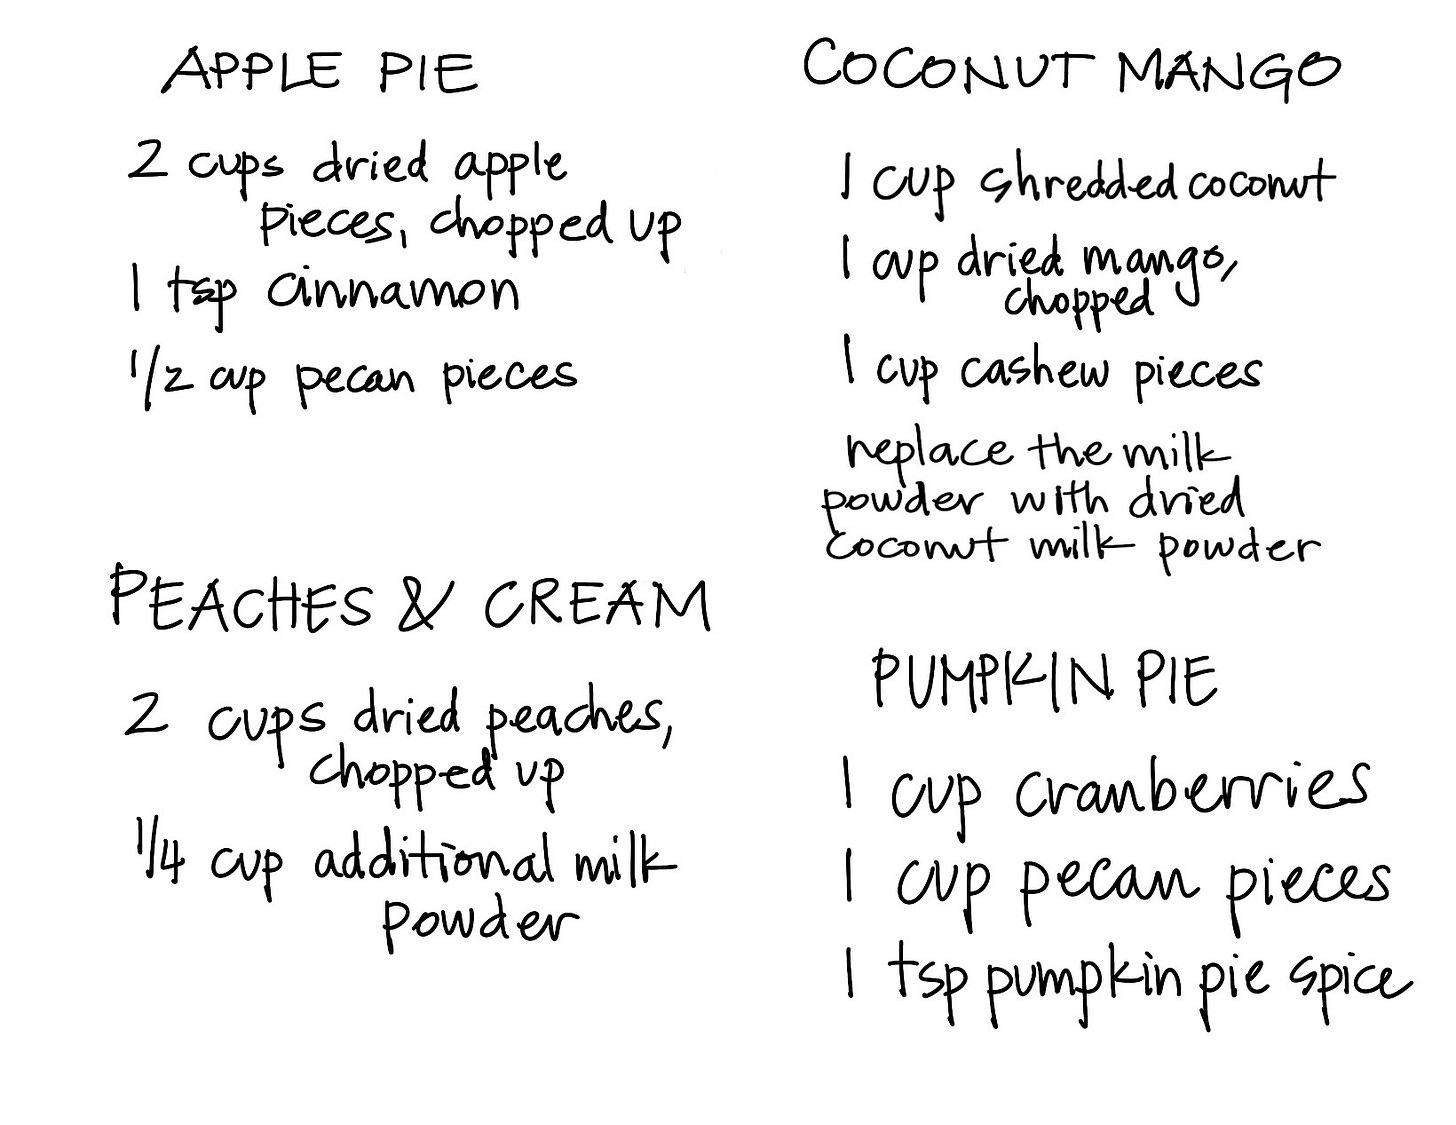 APPLE PIE
2 cups dried apple
pieces, chopped up
1 tsp cinnamon
1/2 cup pecan pieces
PEACHES & CREAM
2 cups dried peaches,
chopped up
1/4 cup additional milk
powder
COCONUT MANGO
1 cup shredded coconut
1 cup dried mango,
chopped
1 cup cashew pieces
replace the milk
powder with dried
coconut milk powder
PUMPKIN PIE
1 cup cranberries
1 cup pecan pieces
1 tsp pumpkin pie spice